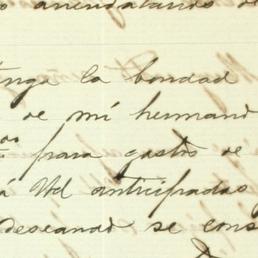 arrendatarios de
tenga la bondad
de mi herman
para gastos de
á Vd anticipadas
deseando se cons